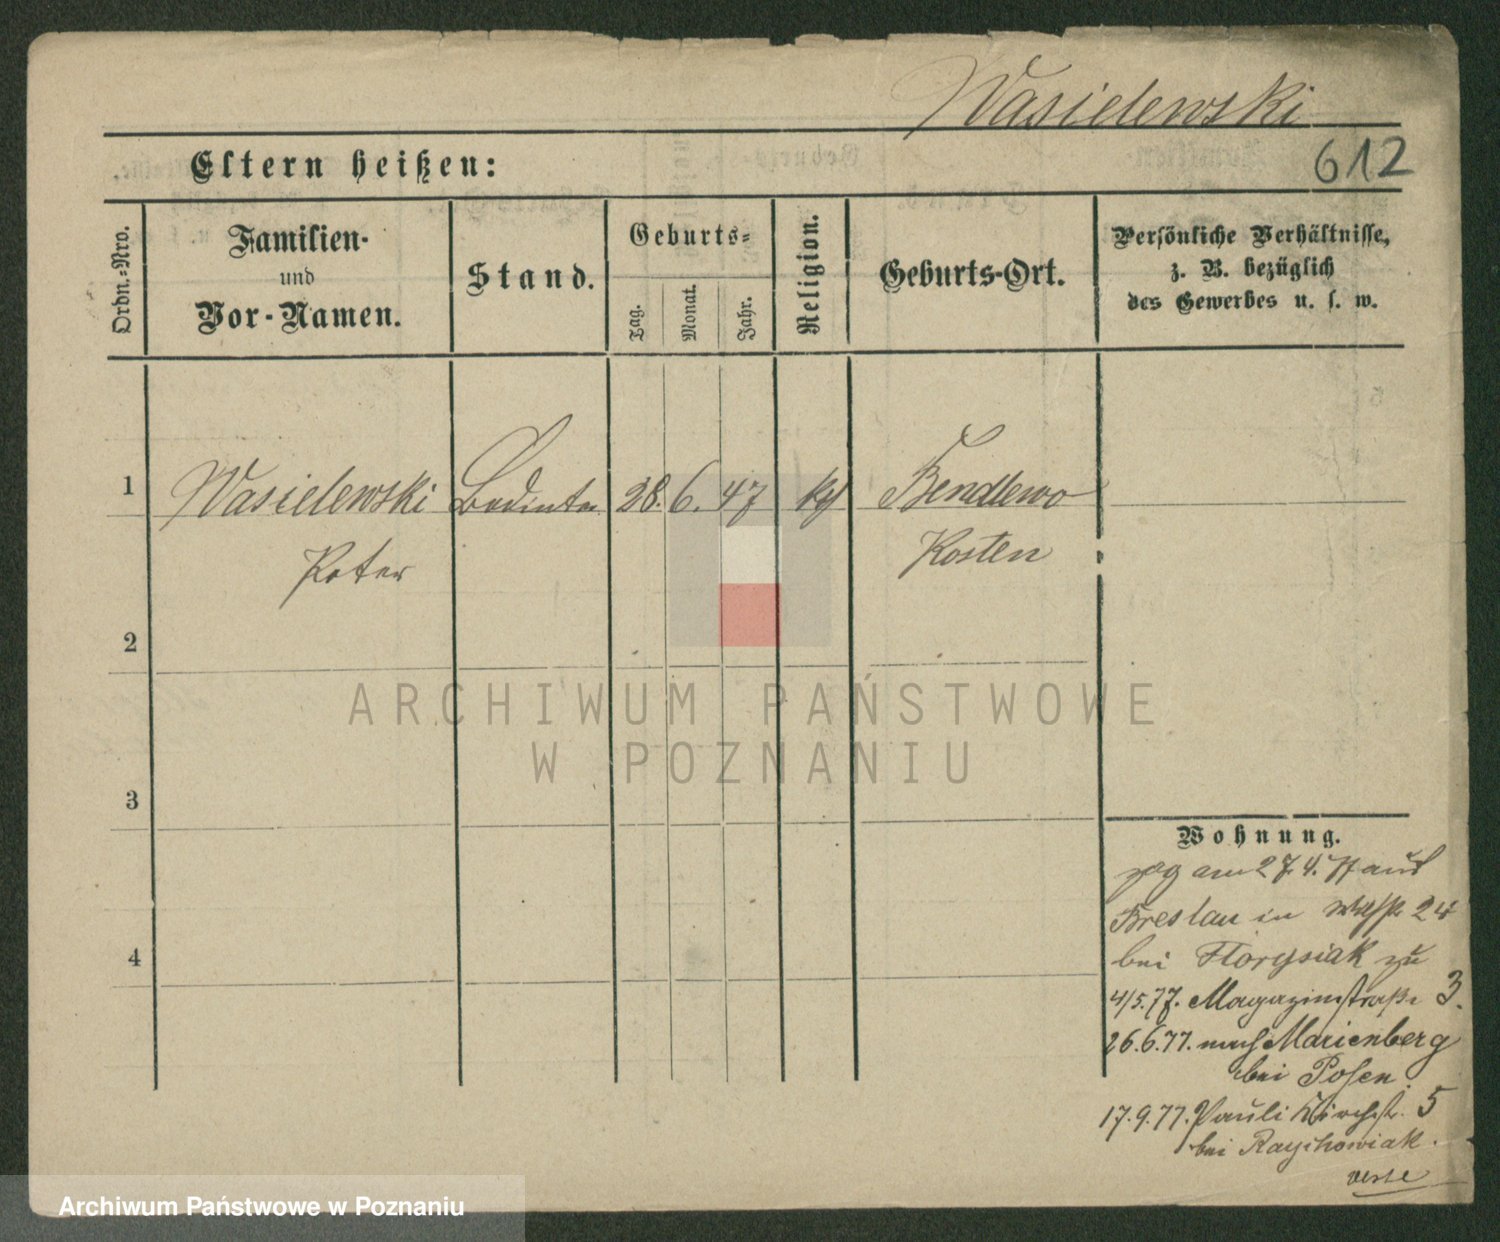 Wasielewski
612
Eltern heißen:
Ordn.-Nro.
Familien-
und
Vor-Namen.
Stand.
Geburts-
Tag.
Monat.
Jahr.
Religion.
Geburts-Ort.
Persönliche Verhältnisse,
z. B. bezüglich
des Gewerbes u. s. w.
1
Wasielewski
28. 6. 47
Bendlewo
Peter
Kosten
2
3
4
Wohnung.
zog am 27.4.77 aus
Breslau in 24
bei Florysiak zu
4/5.77. Magazinstraße 3.
26.6.77. nach Marienberg
bei Posen
17.9.77. Pauli Kirchstr. 5
bei Raychowiak.
ARCHIWUM PAŃSTWOWE
W POZNANIU
Archiwum Państwowe w Poznaniu